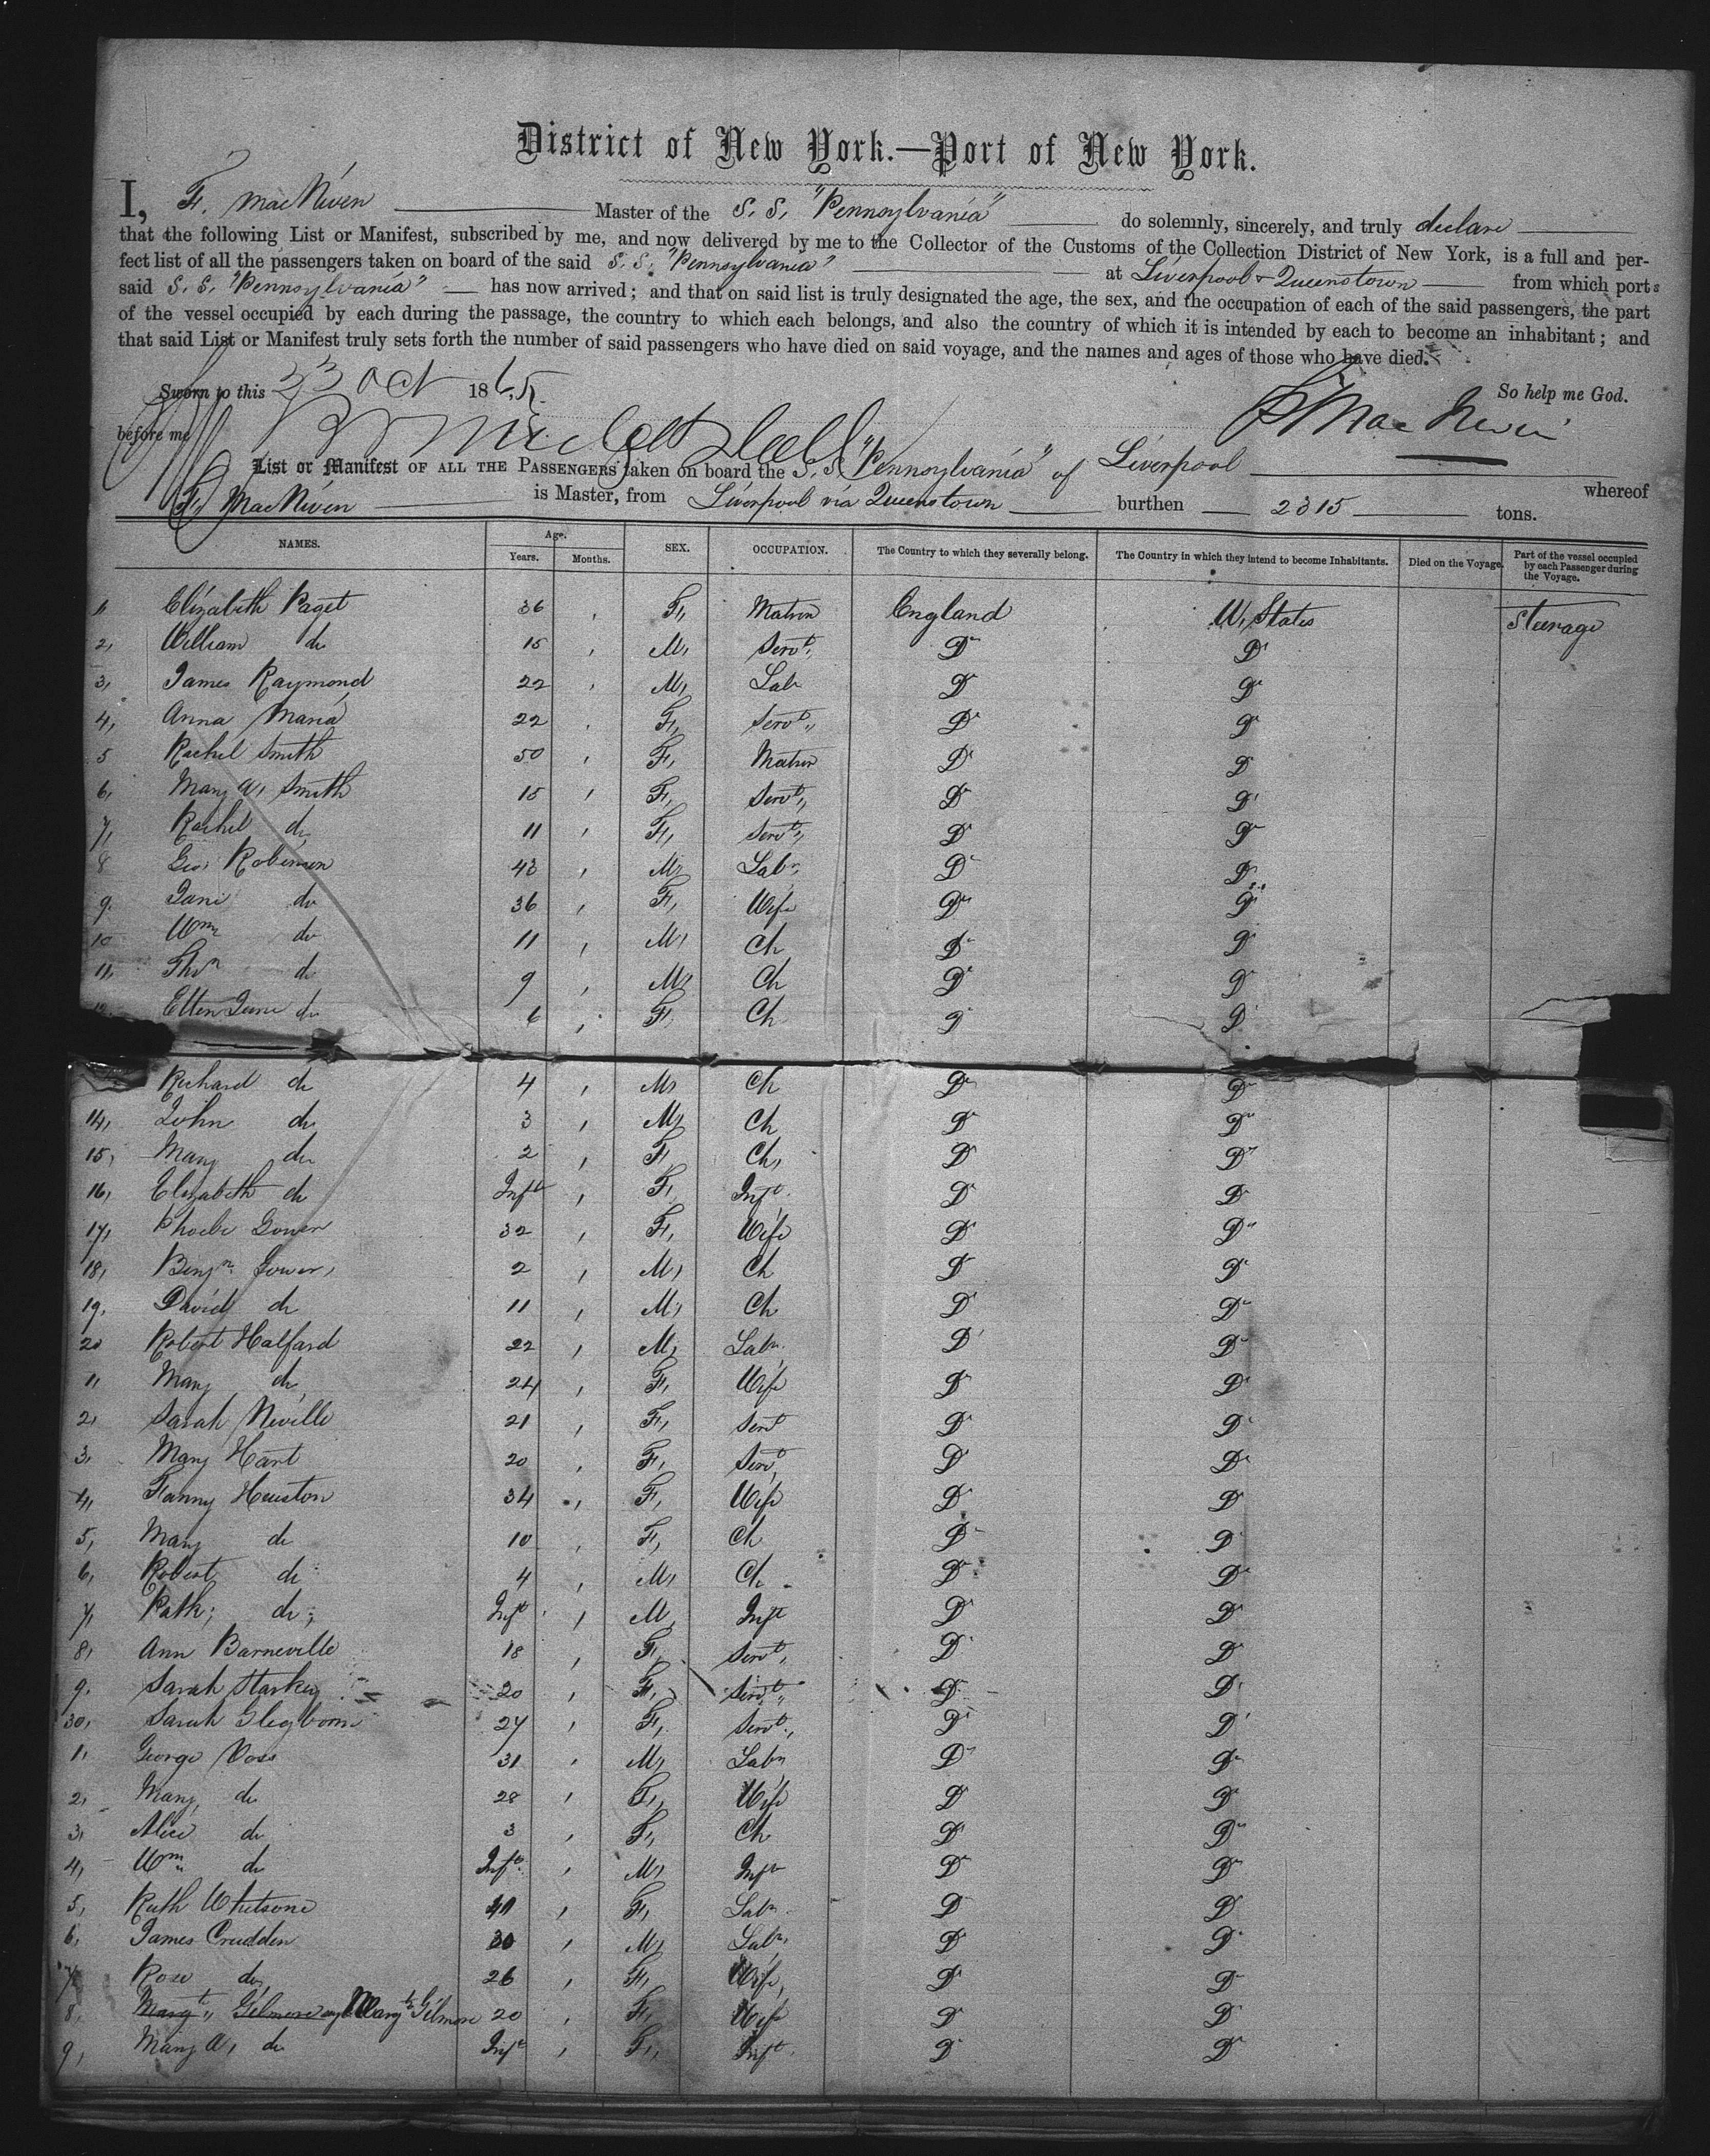 District of New York.—Port of New York.
I, F. MacNiven Master of the S. S. "Pennsylvania" do solemnly, sincerely, and truly declare
that the following List or Manifest, subscribed by me, and now delivered by me to the Collector of the Customs of the Collection District of New York, is a full and per-
fect list of all the passengers taken on board of the said S. S. "Pennsylvania" at Liverpool & Queenstown from which ports
said S. S. "Pennsylvania" has now arrived; and that on said list is truly designated the age, the sex, and the occupation of each of the said passengers, the part
of the vessel occupied by each during the passage, the country to which each belongs, and also the country of which it is intended by each to become an inhabitant; and
that said List or Manifest truly sets forth the number of said passengers who have died on said voyage, and the names and ages of those who have died.
Sworn to this 23 Oct 1865 So help me God.
before me F MacNiven
List or Manifest OF ALL THE PASSENGERS taken on board the S. S. "Pennsylvania" of Liverpool whereof
F. MacNiven is Master, from Liverpool via Queenstown burthen 2315 tons.
NAMES. Age. Years. Months. SEX. OCCUPATION. The Country to which they severally belong. The Country in which they intend to become Inhabitants. Died on the Voyage. Part of the vessel occupied by each Passenger during the Voyage.
1, Elizabeth Paget 36 F, Matron England U, States Steerage
2, William do 15 M, Servt, Do Do
3, James Raymond 22 M, Labr Do Do
4, Anna Maria 22 F, Servt, Do Do
5 Rachel Smith 50 F, Matron Do Do
6, Mary A, Smith 15 F, Servt, Do Do
7, Rachel do 11 F, Servt, Do Do
8 Geo, Robinson 43 M, Labr, Do Do
9. Jane do 36 F, Wife Do Do
10 Wm do 11 M, Ch Do Do
11, Thos do 9 M, Ch Do Do
12. Ellen Jane do 6 F, Ch Do Do
Richard do 4 M, Ch Do Do
14, John do 3 M, Ch Do Do
15, Mary do 2 F, Ch, Do Do
16, Elizabeth do Inft F, Inft. Do Do
17, Phoebe Gower 32 F, Wife Do Do
18, Benjn. Gower, 2 M, Ch Do Do
19. David do 11 M, Ch Do Do
20 Robert Halfard 22 M, Labr. Do Do
1, Mary do 24 F, Wife Do Do
2, Sarah Neville 21 F, Servt Do Do
3, Mary Hart 20 F, Servt, Do Do
4, Fanny Heuston 34 F, Wife Do Do
5, Mary do 10 F, Ch Do Do
6, Robert do 4 M, Ch Do Do
7, Patk; do; Inft M, Inft Do Do
8, Ann Barneville 18 F, Servt, Do Do
9. Sarah Starkey 20 F, Servt, Do Do
30, Sarah 27 F, Servt, Do Do
1, George Voss 31 M, Labr Do Do
2, Mary, do 28 F, Wife Do Do
3, Alice do 3 F, Ch Do Do
4, Wm do Inft. M, Inft Do Do
5, Ruth Whetsone F, Labr. Do Do
6, James Crudden 30 M, Labr, Do Do
7, Rose do, 26 F, Wife, Do Do
8, Margt, Gilmore Margt Gilmore 20 F, Wife Do Do
9, Mary A, do Inft F, Inft. Do Do